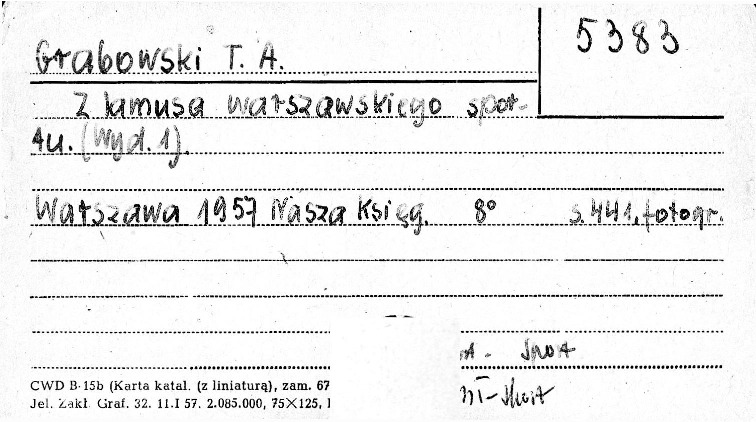 5383
Grabowski T. A.
Z lamusa warszawskiego spor-
tu. (Wyd. 1).
Warszawa 1957 Nasza Księg. 8° s. 441, fotogr.
- Sport
CWD B-15b (Karta katal. (z liniaturą), zam. 67
Jel. Zakł. Graf. 32. 11.I 57. 2.085.000, 75×125,